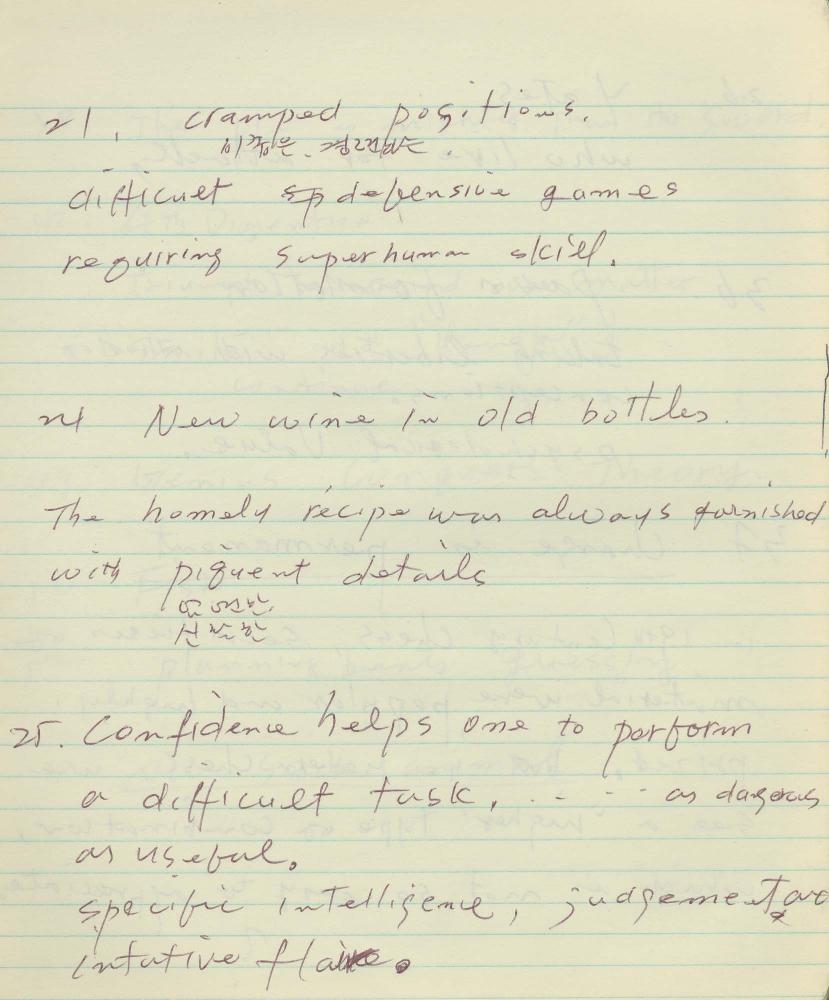 21. cramped positions.
비좁은.
difficult defensive games
requiring superhuman skill.
24 New wine in old bottles.
The homely recipe was always furnished
with piquent details
신랄한
25. Confidence helps one to perform
a difficult task, - - - - as dagerous
as useful.
specific intelligence, judgement
intutive